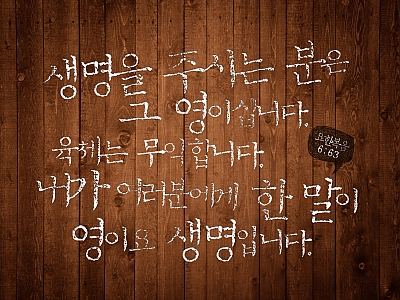 생명을 주시는 분은
그 영이십니다.
육체는 무익합니다.
내가 여러분에게 한 말이
영이요 생명입니다.
요한복음
6:63